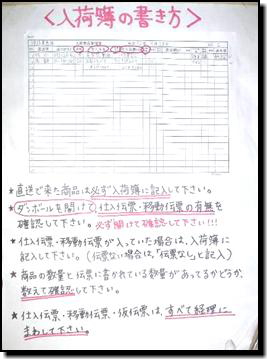 〈入荷簿の書き方〉
★直送で来た商品は必ず入荷簿に記入して下さい。
★ダンボールを開けて、仕入伝票・移動伝票の有無を
確認して下さい。必ず開けて確認して下さい!!!
★仕入伝票・移動伝票が入っていた場合は、入荷簿に
記入して下さい。(伝票ない場合は、「伝票なし」と記入)
★商品の数量と伝票に書かれている数量があってるかどうか、
数えて確認して下さい。
★仕入伝票・移動伝票・仮伝票は、すべて経理に
まわして下さい。